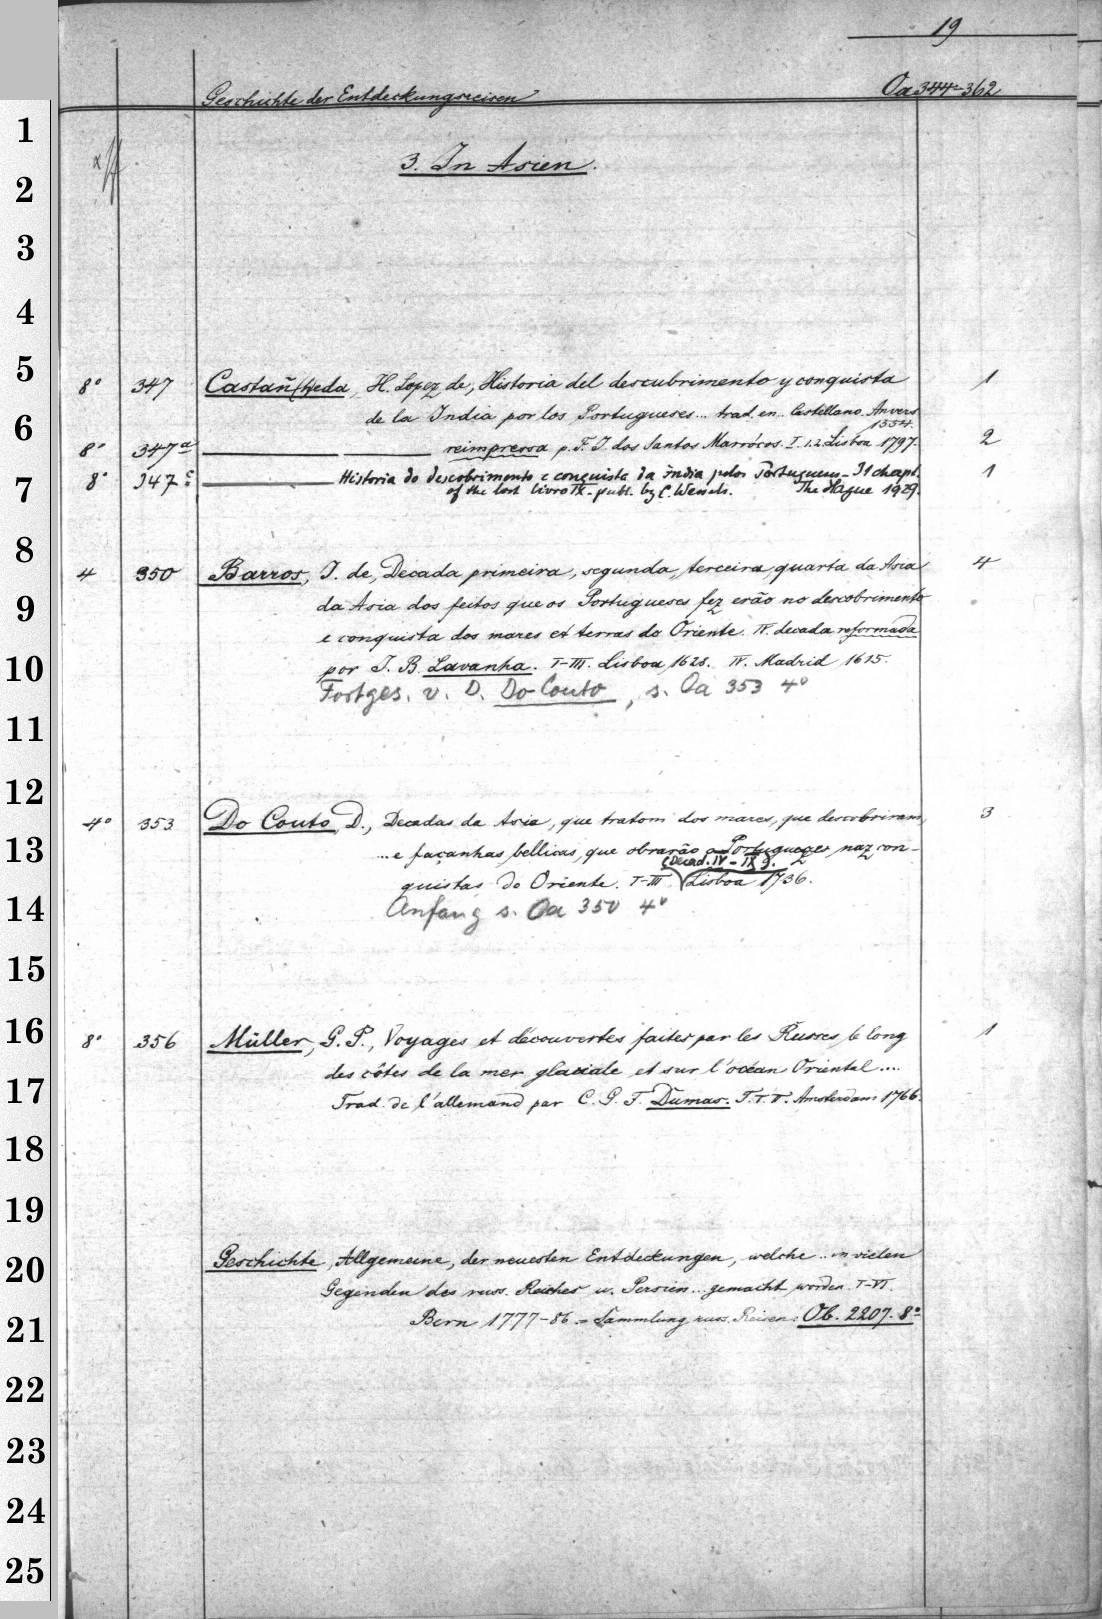 19
Geschichte der Entdeckungsreisen Oa 344-362
1
2
3. In Asien.
3
4
5
8° 347 Castañ(h)eda, H. Lopez de, Historia del descubrimento y conquista 1
de la India por los Portugueses... trad. en Castellano. Anvers
1554.
6
8° 347a reimpressa p. F. J. dos Santos Marrócos. I 1.2. Lisboa 1797. 2
7
8° 347c Historia do descobrimento e conquista da India pelos Portugueses - 31 chapt. 1
of the lost livro IX. publ. by C. Wessels. The Hague 1929.
8
4 350 Barros, J. de, Decada primeira, segunda, terceira, quarta da Asia 4
9
da Asia dos feitos que os Portugueses fez erão no descobrimento
e conquista dos mares et terras do Oriente. IV. decada reformada
10
por J. B. Lavanha. I-III. Lisboa 1628. IV. Madrid 1615.
Fortges. v. D. Do Couto, s. Oa 353 4°
11
12
4° 353 Do Couto, D., Decadas da Asia, que tratom dos mares, que descobriram, 3
13
...e façanhas bellicas, que obrarão os Portugueses naz con-
(Decad. IV-IX).
quistas do Oriente. I-III Lisboa 1736.
14
Anfang s. Oa 350 4°
15
16
8° 356 Müller, G. P., Voyages et découvertes faites par les Russes, le long 1
des côtes de la mer glaciale et sur l'océan Oriental....
17
Trad. de l'allemand par C. G. F. Dumas. T. I. II. Amsterdam 1766.
18
19
20
Geschichte, Allgemeine, der neuesten Entdeckungen, welche .. in vielen
Gegenden des russ. Reiches u. Persien... gemacht worden. I-VI.
21
Bern 1777-86. = Sammlung russ. Reisen: Ob. 2207. 8°
22
23
24
25